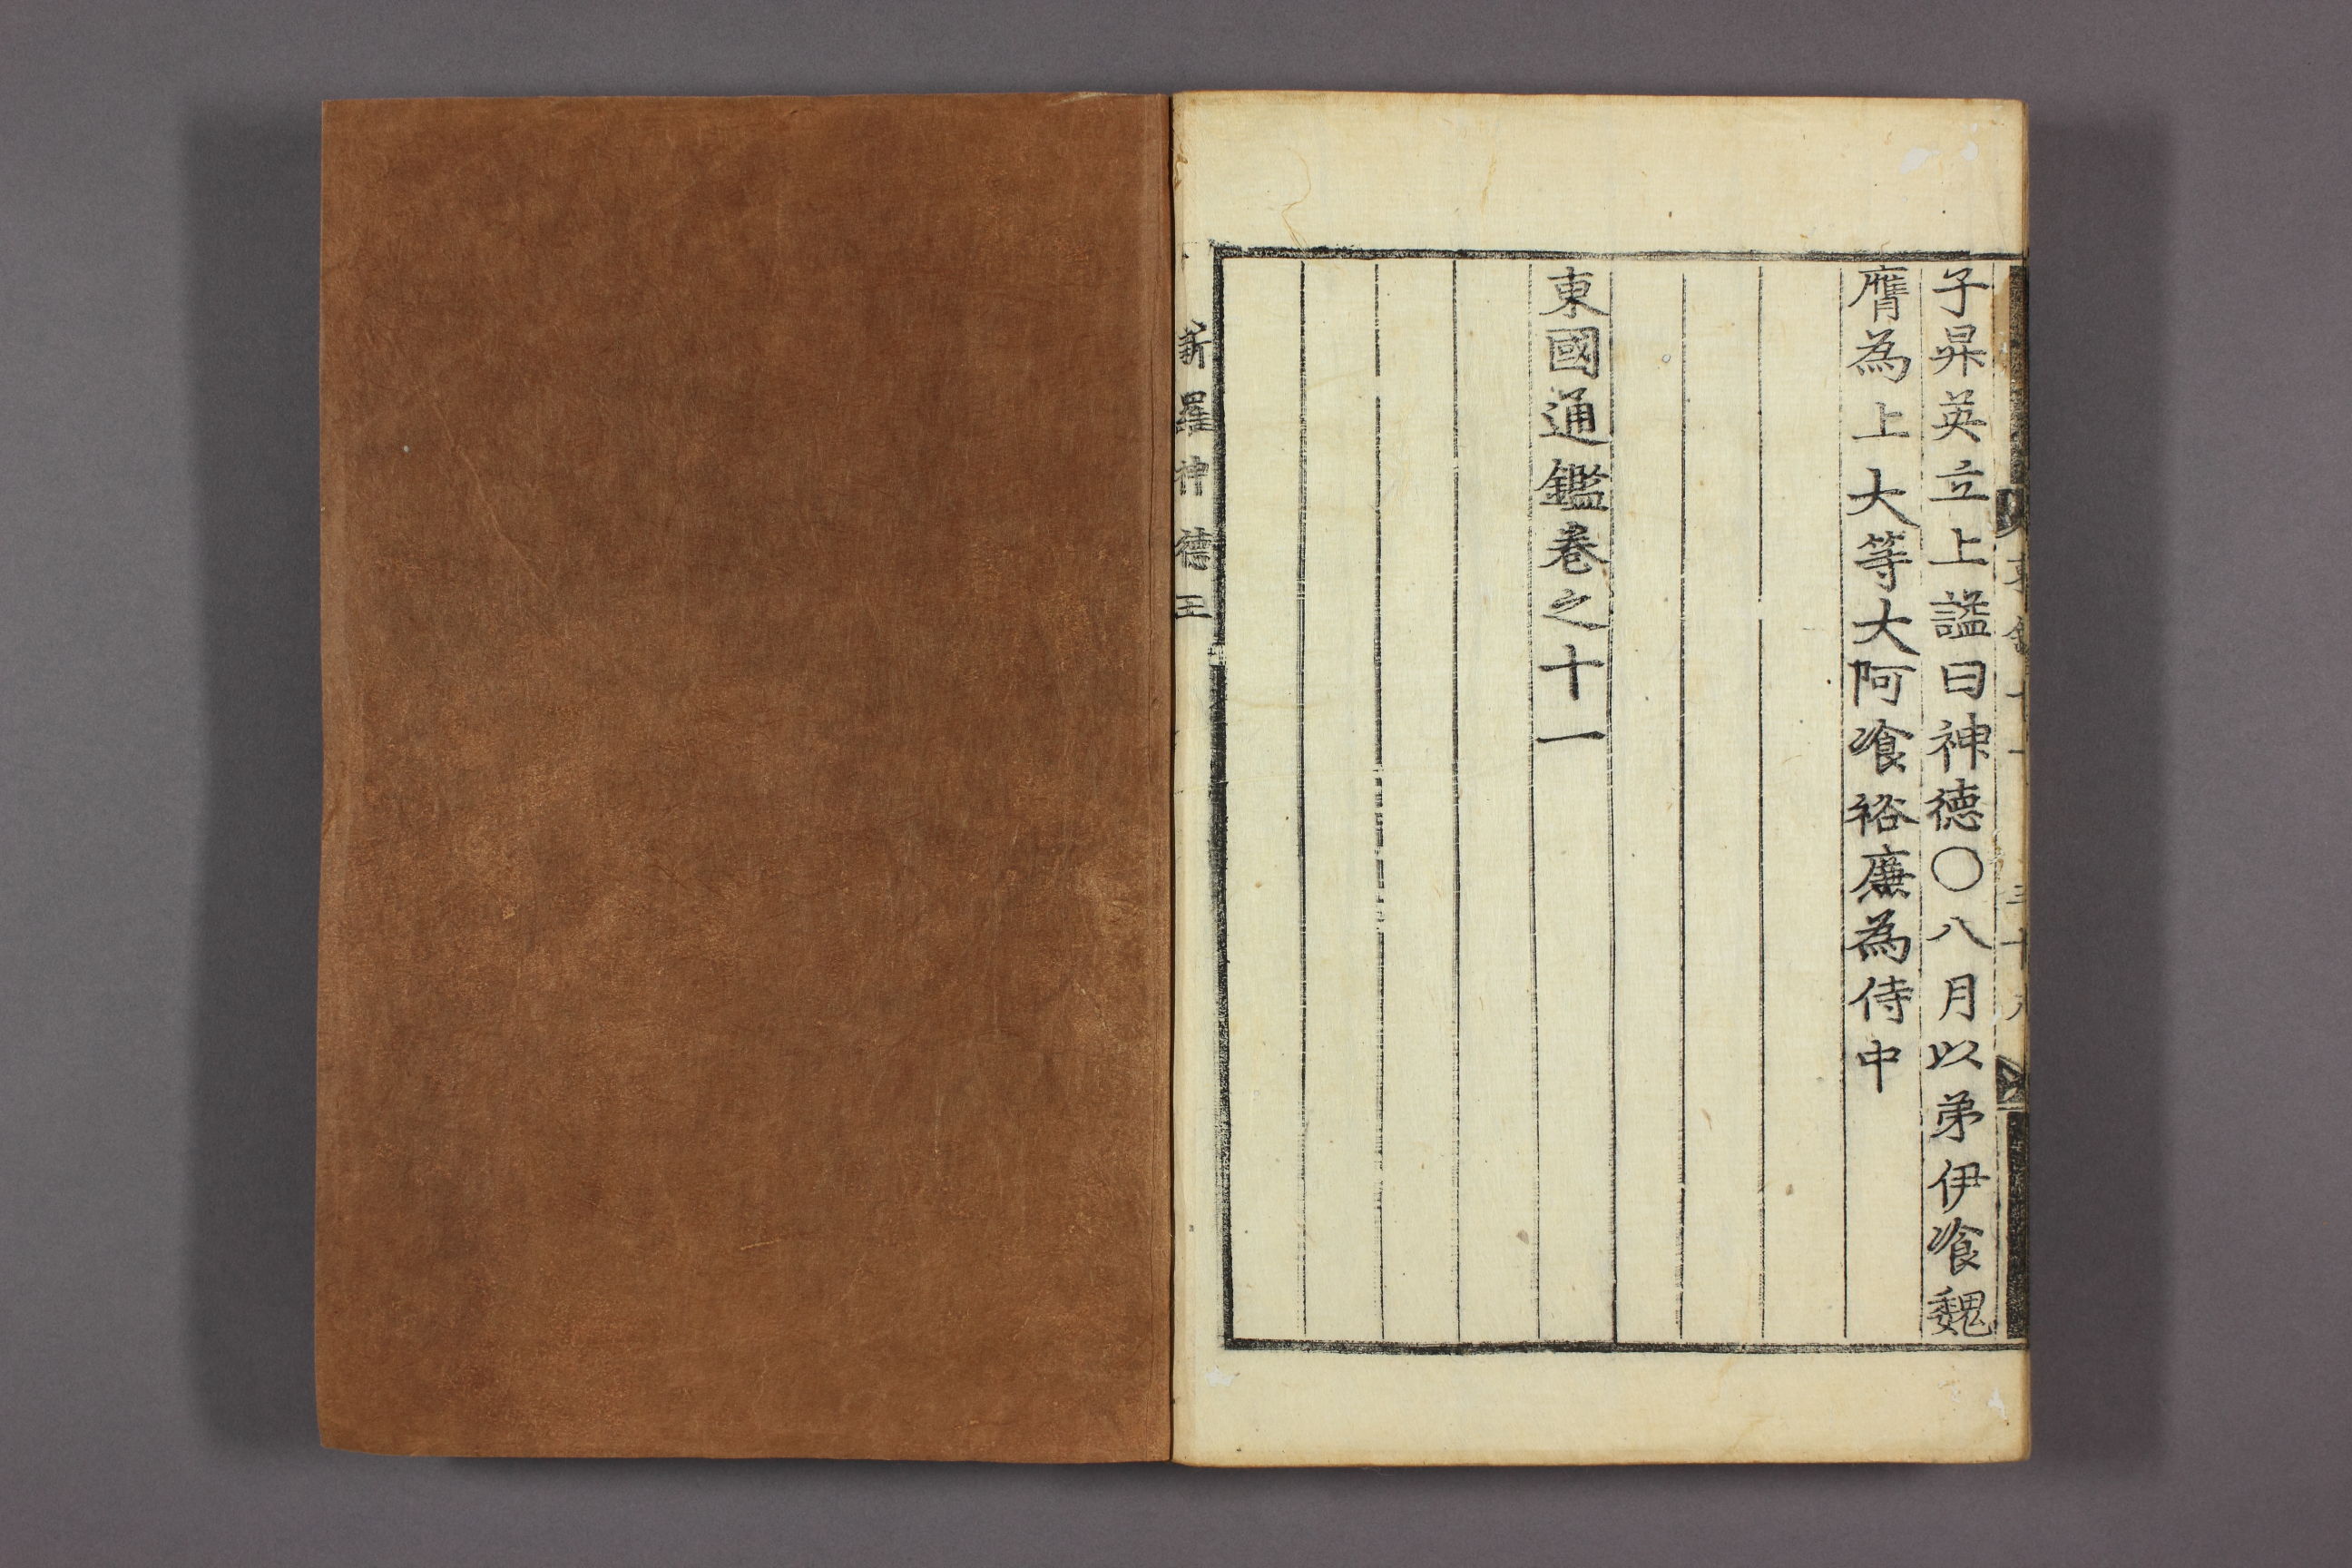 子昇英立上謚曰神德○八月以弟伊飡魏
膺為上大等大阿飡裕廉為侍中
東國通鑑卷之十一
新羅神德王